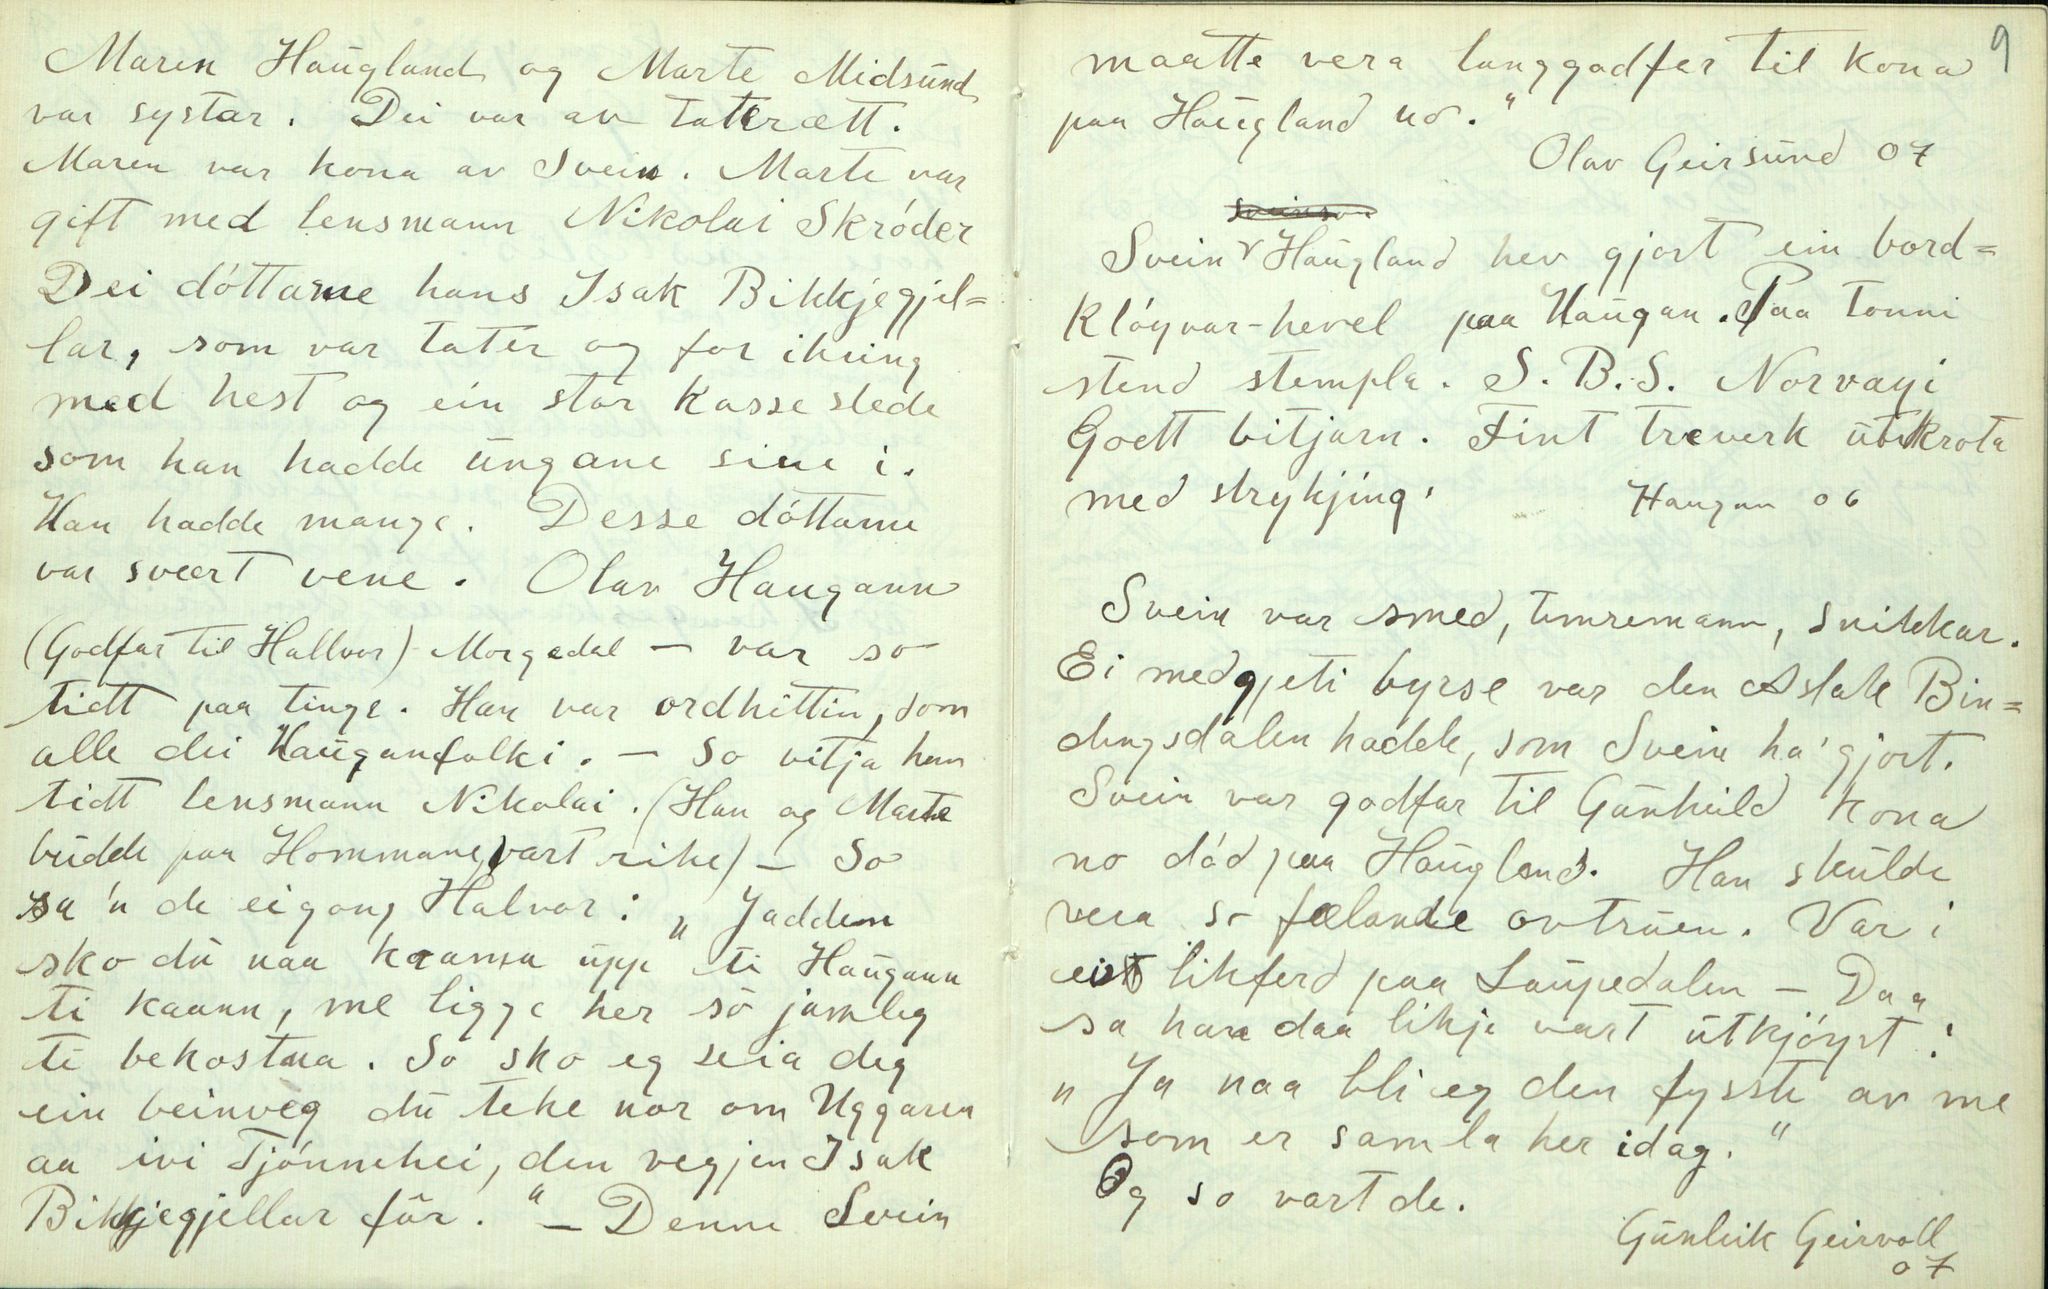 Maren Haugland og Marte Midsund
var systar. Dei var av taterætt.
Maren var kona av Svein. Marte var
gift med lensmann Nikolai Skrøder
Dei døttarne hans Isak Bikkjegjel=
lar, som var tater og for ikring
med hest og ein stor kasseslede
som han hadde ungane sine i.
Han hadde mange. Desse døttarne
var svært vene. Olav Haugann
(Godfar til Hallvor) Morgedal – var so
tidt paa tinge. Han var ordhittin, som
alle dei Hauganfolki. – So vitja han
tidt lensmann Nikolai. (Han og Marte
budde paa Hommane, vart rike) – So
sa 'n de eigong Halvor: „Jadden
sko du naa kaama upp ti Haugann
ti kaann, me ligge her so jamleg
ti bekostna. So sko eg seia deg
ein beinveg du teke nor om Uggaren
aa ivi Tjønnehei, den vegjen Isak
Bikkjegjellar fór." – Denne Svein
9
maatte vera langgodfar til kona
paa Haugland no."
Olav Geirsund 07
Sveinson
Svein Haugland hev gjort ein bord=
kløyvar-hevel paa Haugan. Paa tonni
stend stempla. S. B. S. Norvagi
Goett bitjarn. Fint treverk utkrota
med strykjing. Haugan 06
Svein var smed, timremann, snikkar.
Ei medgjeti byrse var den Aslak Bin=
dingsdalen hadde, som Svein ha' gjort.
Svein var godfar til Gunhild kona
no død paa Haugland. Han skulde
vera so fælande ovtruen. Var i
eit likferd paa Laupedalen – Daa
sa han daa likje vart utkjøyrt:
„Ja naa bli eg den fysste av me
som er samla her idag."
Og so vart de.
Gunleik Geirvoll
07